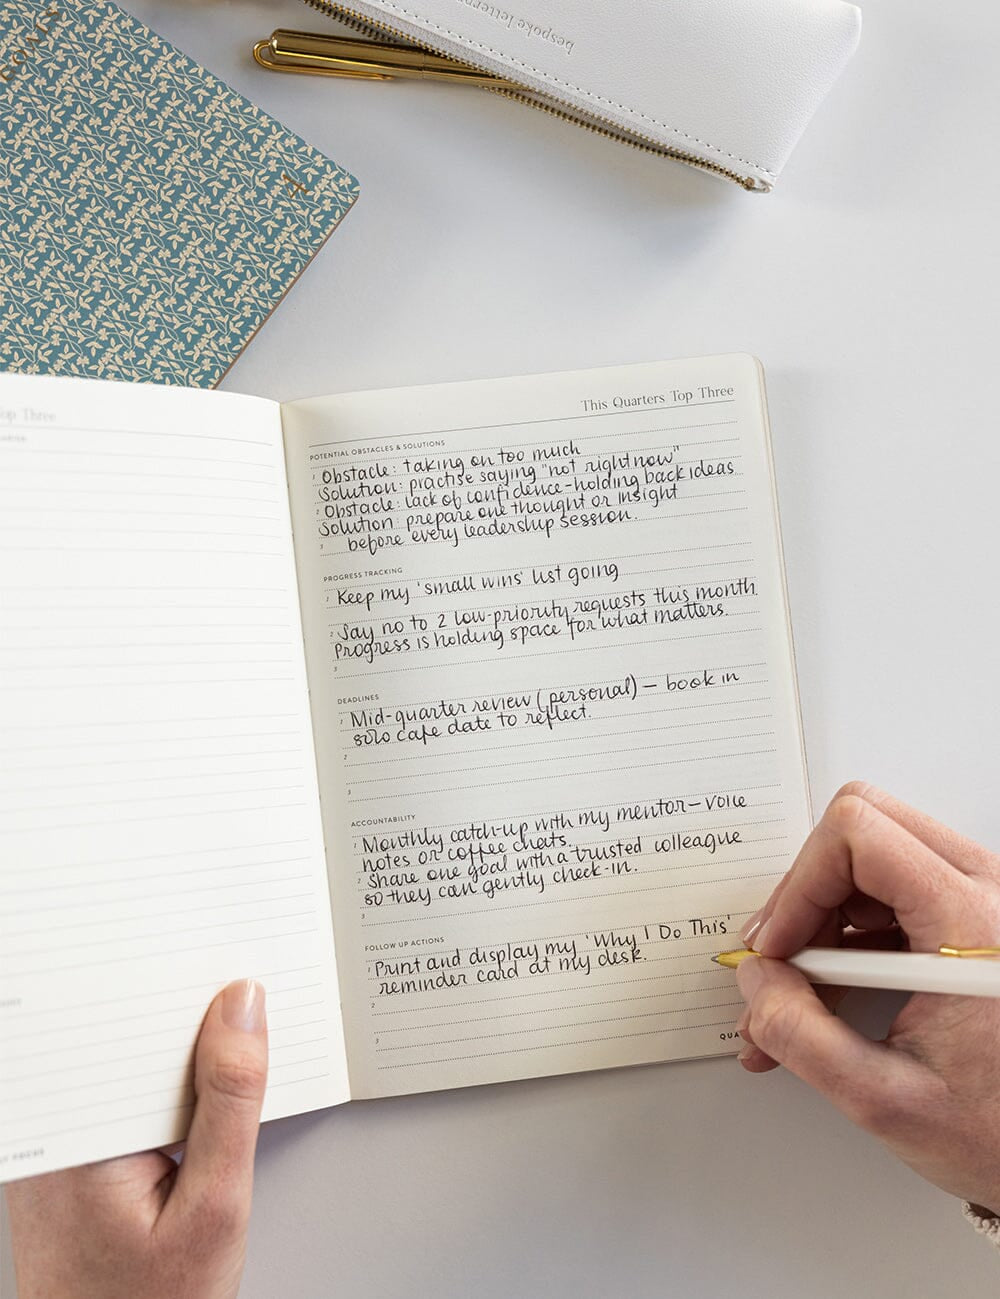 bespoke letterp
4
Top Three
This Quarters Top Three
POTENTIAL OBSTACLES & SOLUTIONS
1 Obstacle: taking on too much
Solution: practise saying "not right now"
2 Obstacle: lack of confidence - holding back ideas
Solution: prepare one thought or insight
3 before every leadership session.
PROGRESS TRACKING
1 Keep my 'small wins' list going
2 Say no to 2 low-priority requests this month.
Progress is holding space for what matters.
3
DEADLINES
1 Mid-quarter review (personal) – book in
solo cafe date to reflect.
2
3
ACCOUNTABILITY
1 Monthly catch-up with my mentor – voice
notes or coffee chats.
2 Share one goal with a trusted colleague
so they can gently check-in.
3
FOLLOW UP ACTIONS
1 Print and display my 'Why I Do This'
reminder card at my desk.
2
3
QUA
FOCUS